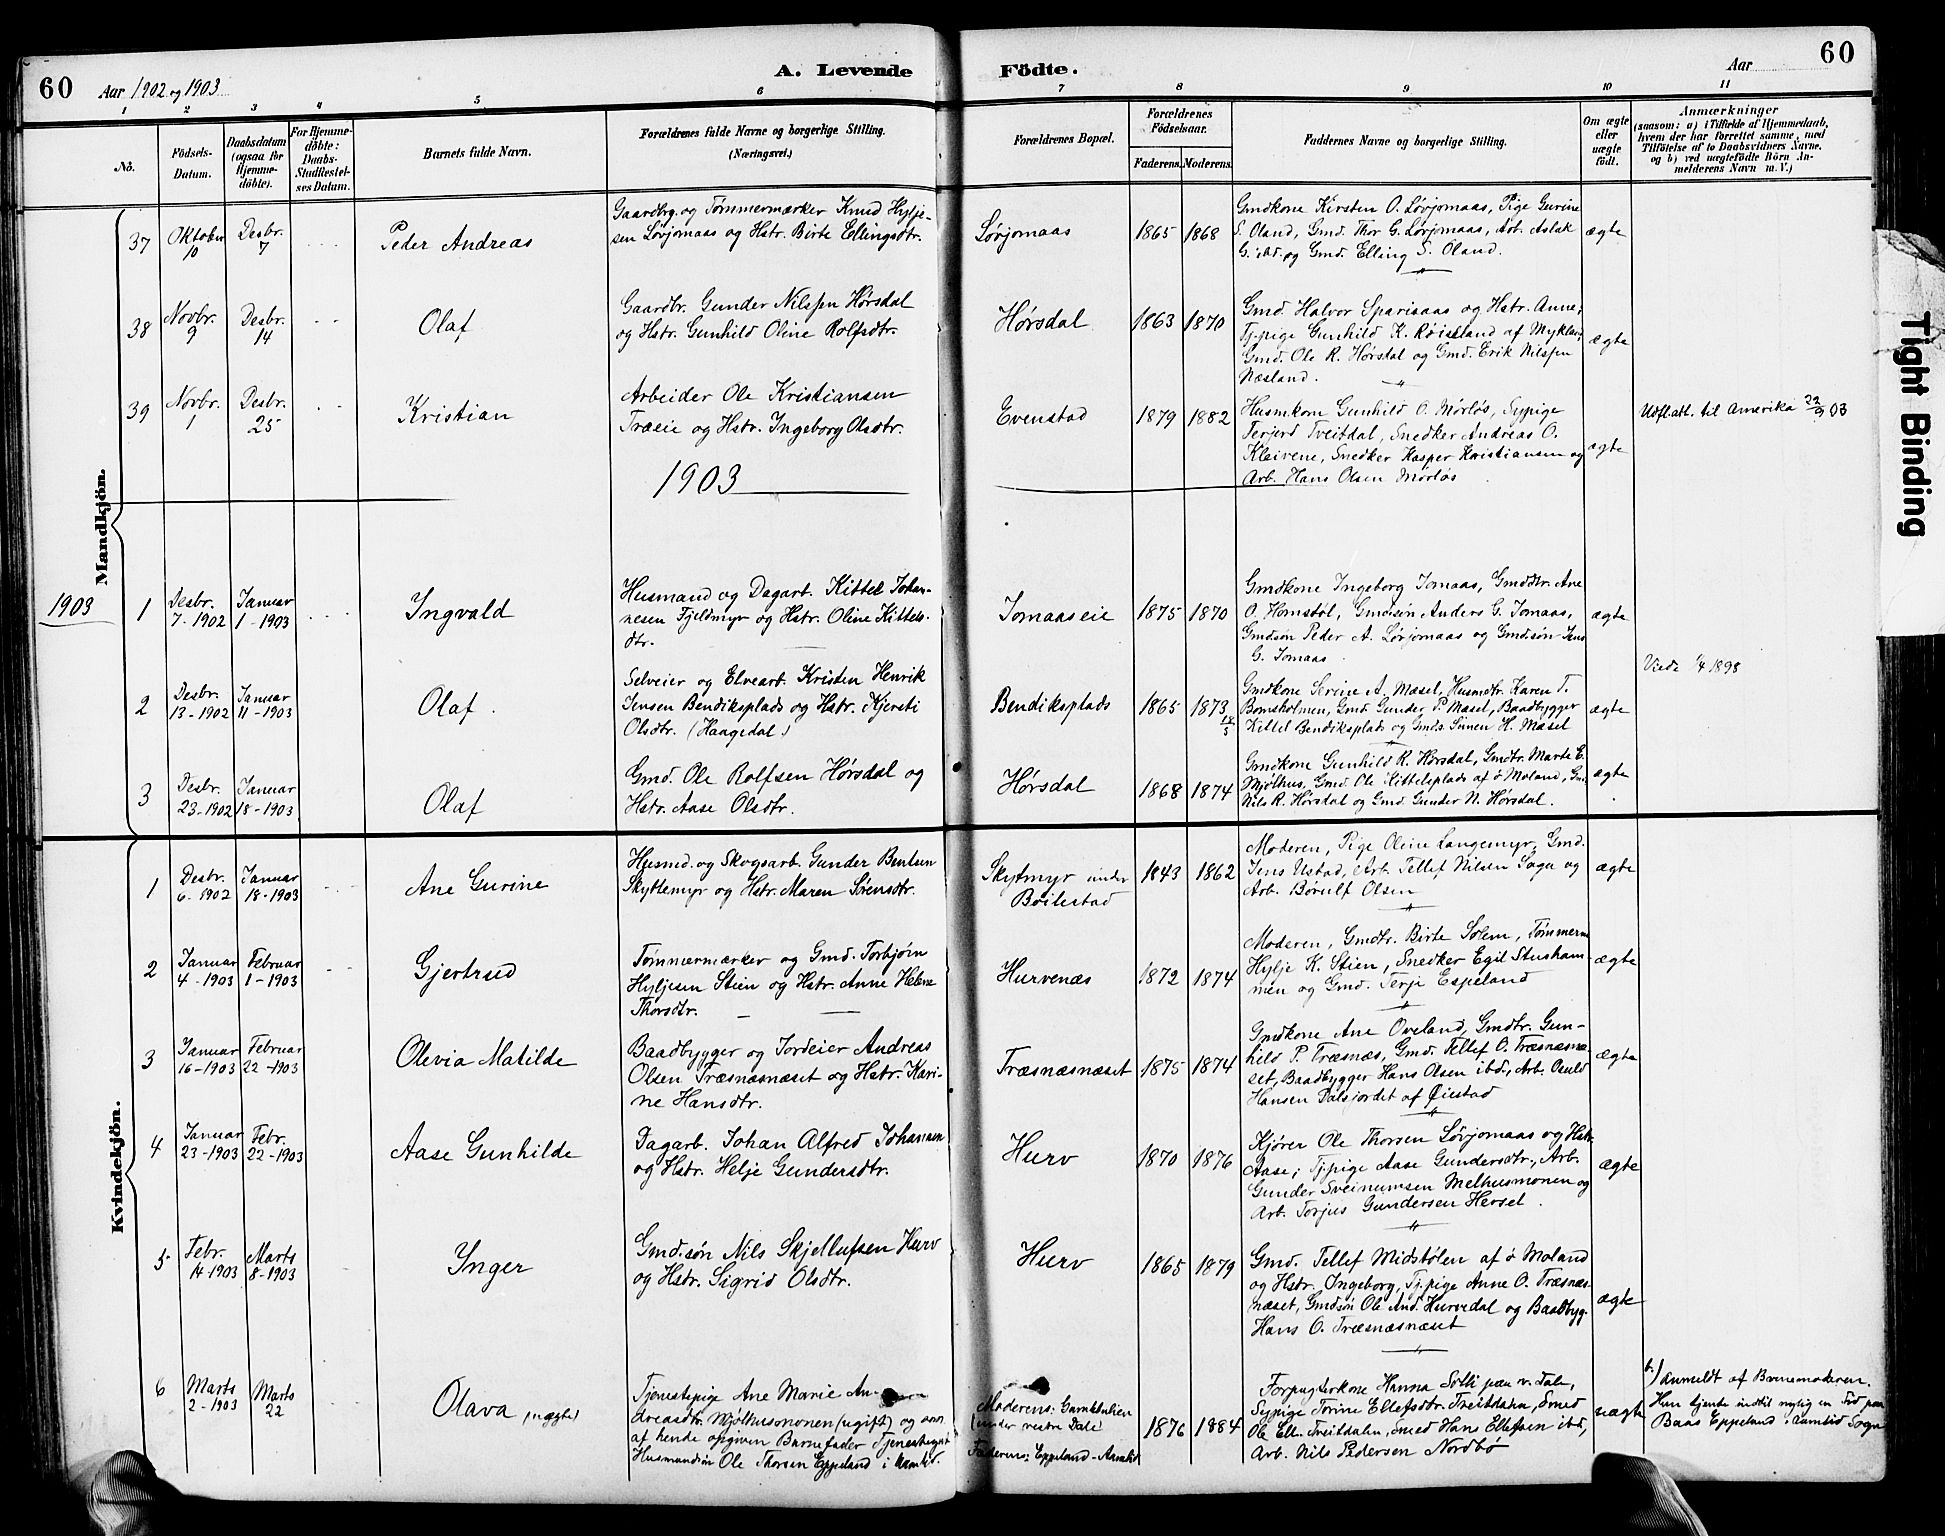 60
Aar 1902 og 1903
A. Levende
Födte.
Aar
60
1 2 3 4 5 6 7 8 9 10 11
No.
Födsels-
Datum.
Daabsdatum
(ogsaa for
Hjemme-
döbte).
For Hjemme-
döbte:
Daabs-
Stadfæstel-
ses Datum.
Barnets fulde Navn.
Forældrenes fulde Navne og borgerlige Stilling.
(Næringsvei.)
Forældrenes Bopæl.
Forældrenes
Födselsaar.
Faderens. Moderens.
Faddernes Navne og borgerlige Stilling.
Om ægte
eller
uægte
födt.
Anmærkninger
(saasom: a) i Tilfælde af Hjemmedaab,
hvem der har forrettet samme, med
Tilföielse af to Daabsvidners Navne,
og b) ved uægtefödte Börn An-
melderens Navn m. V.)
Tight Binding
Mandkjön.
37
Oktober
10
Desbr.
7
Peder Andreas
Gaardbrg. og Tømmermærker Knud Hylje-
sen Lørjomaas og Hstr. Birte Ellingsdtr.
Lørjomaas
1865 1868
Gmdkone Kirsten O. Lørjomaas, Pige Gurine
S. Oland, Gmd. Thor G. Lørjomaas, Arb. Aslak
G. ibd. og Gmd. Elling S. Oland.
ægte
38
Novbr.
9
Desbr.
14
Olaf
Gaardbr. Gunder Nilssen Hørsdal
og Hstr. Gunhild Oline Rolfsdtr.
Hørsdal
1863 1870
Gmd. Halvor Sparsaas og Hstr. Anne,
Tj.pige Gunhild K. Røiseland af Mykland,
Gmd. Ole R. Hørsdal og Gmd. Erik Nilssen
Næsland.
ægte
39
Novbr.
1
Desbr.
25
Kristian
Arbeider Ole Kristiansen
Træeie og Hstr. Ingeborg Olsdtr.
Evenstad
1879 1882
Husmkone Gunhild O. Mørløs, Sypige
Terjerd Tveitdal, Snedker Andreas O.
Kleivene, Snedker Kasper Kristiansen og
Arb. Hans Olsen Mørløs
ægte
Udfl.att. til Amerika 22/9 03
1903
1903
1
Desbr.
7.-1902
Januar
1-1903
Ingvald
Husmand og Dagarb. Kittel Johan-
nesen Fjeldmyr og Hstr. Oline Kittels-
dtr.
Jomaaseie
1875 1870
Gmdkone Ingeborg Jomaas, Gmddtr. Ane
O. Homstøl, Gmdsøn Anders G. Jomaas,
Gmdsøn Peder A. Lørjomaas og Gmdsøn Jens
G. Jomaas
ægte
2
Desbr.
13-1902
Januar
11-1903
Olaf
Selveier og Elvearb. Kristen Henrik
Jensen Bendiksplads og Hstr. Kjersti
Olsdtr. (Haagedal)
Bendiksplads
1865 1873
18/5
Gmdkone Serine A. Mæsel, Husmdtr. Karen T.
Bomsholmen, Gmd. Gunder P. Mæsel, Baadbygger
Kittel Bendiksplads og Gmds. Simen H. Mæsel
ægte
Viede 1/4 1898
3
Desbr.
23-1902
Januar
18-1903
Olaf
Gmd. Ole Rolfsen Hørsdal og
Hstr. Aase Olsdtr.
Hørsdal
1868 1874
Gmdkone Gunhild R. Hørsdal, Gmdtr. Marte E.
Mjølhus, Gmd. Ole Kittelsplads af ö. Moland, Gm.
Nils R. Hørsdal og Gmd. Gunder N. Hørsdal.
ægte
Kvindekjön.
1
Desbr.
6-1902
Januar
18-1903
Ane Gurine
Husmd. og Skogsarb. Gunder Bentsen
Skyttemyr og Hstr. Maren Sørensdtr.
Skytmyr under
Bøilestad
1843 1862
Moderen, Pige Oline Langemyr, Gmd.
Jens Ustad, Arb. Tellef Nilsen Saga og
Arb. Børulf Olsen
ægte
2
Januar
4-1903
Februar
1-1903
Gjertrud
Tømmermærker og Gmd. Torbjørn
Hyljesen Stien og Hstr. Anne Helene
Thorsdtr.
Hurvenæs
1872 1874
Moderen, Gmdtr. Birte Solem, Tømmerm
Hylje K. Stien, Snedker Egil Stusham-
men og Gmd. Terje Espeland
ægte
3
Januar
16-1903
Februar
22-1903
Olevia Matilde
Baadbygger og Jordeier Andreas
Olsen Træsnæsnæset og Hstr. Kari-
ne Hansdtr.
Træsnæsnæset
1875 1874
Gmdkone Ane Oveland, Gmdtr. Gun-
hild P. Træsnæs, Gmd. Tellef O. Træsnæsnæ-
set, Baadbygger Hans Olsen ibd., Arb. Auld
Hansen Dalsjordet af Øiestad
ægte
4
Januar
23-1903
Febr.
22-1903
Aase Gunhilde
Dagarb. Johan Alfred Johansen
og Hstr. Helje Gundersdtr.
Hurv
1870 1876
Kjører Ole Thorsen Lørjomaas og Hstr.
Aase, Tj.pige Aase Gundersdtr., Arb.
Gunder Sveinumsen Melhusmonen og
Arb. Torjus Gundersen Hersel.
ægte
5
Febr.
14-1903
Marts
8-1903
Inger
Gmd.søn Nils Skjellufsen Hurv
og Hstr. Sigrid Olsdtr.
Hurv
1865 1879
Gmd. Tellef Midstølen af ö Moland
og Hstr. Ingeborg, Tj.pige Anne O. Træsnæs-
næset, Gmdsøn Ole And. Hurvedal og Baadbyg.
Hans O. Træsnæsnæset
ægte
6
Marts
2-1903
Marts
22
Olava (uægte)
Tjenestepige Ane Marie An-
dreasdtr. Mjølhusmonen (ugift) og som
af hende opgiven Barnefader Tjenestegut
Husmandsøn Ole Thorsen Eppeland i Aamlid.
Moderens:
(under nedre Dale)
Faderens: Eppeland-Aamlid
1876 1884
Forpagterkone Hanna Solli paa n. Dale,
Sypige Torine Ellefsdtr. Treitdahn, Smed
Ole Ell. Treitdahn, Smed Hans Ellefsen ibd,
Arb. Nils Pedersen Nordbø
uægte
b.) Anmeldt af Barnemoderen.
Hun tjente indtil nylig en Tid paa
Baas Eppeland i Aamlid Sogn